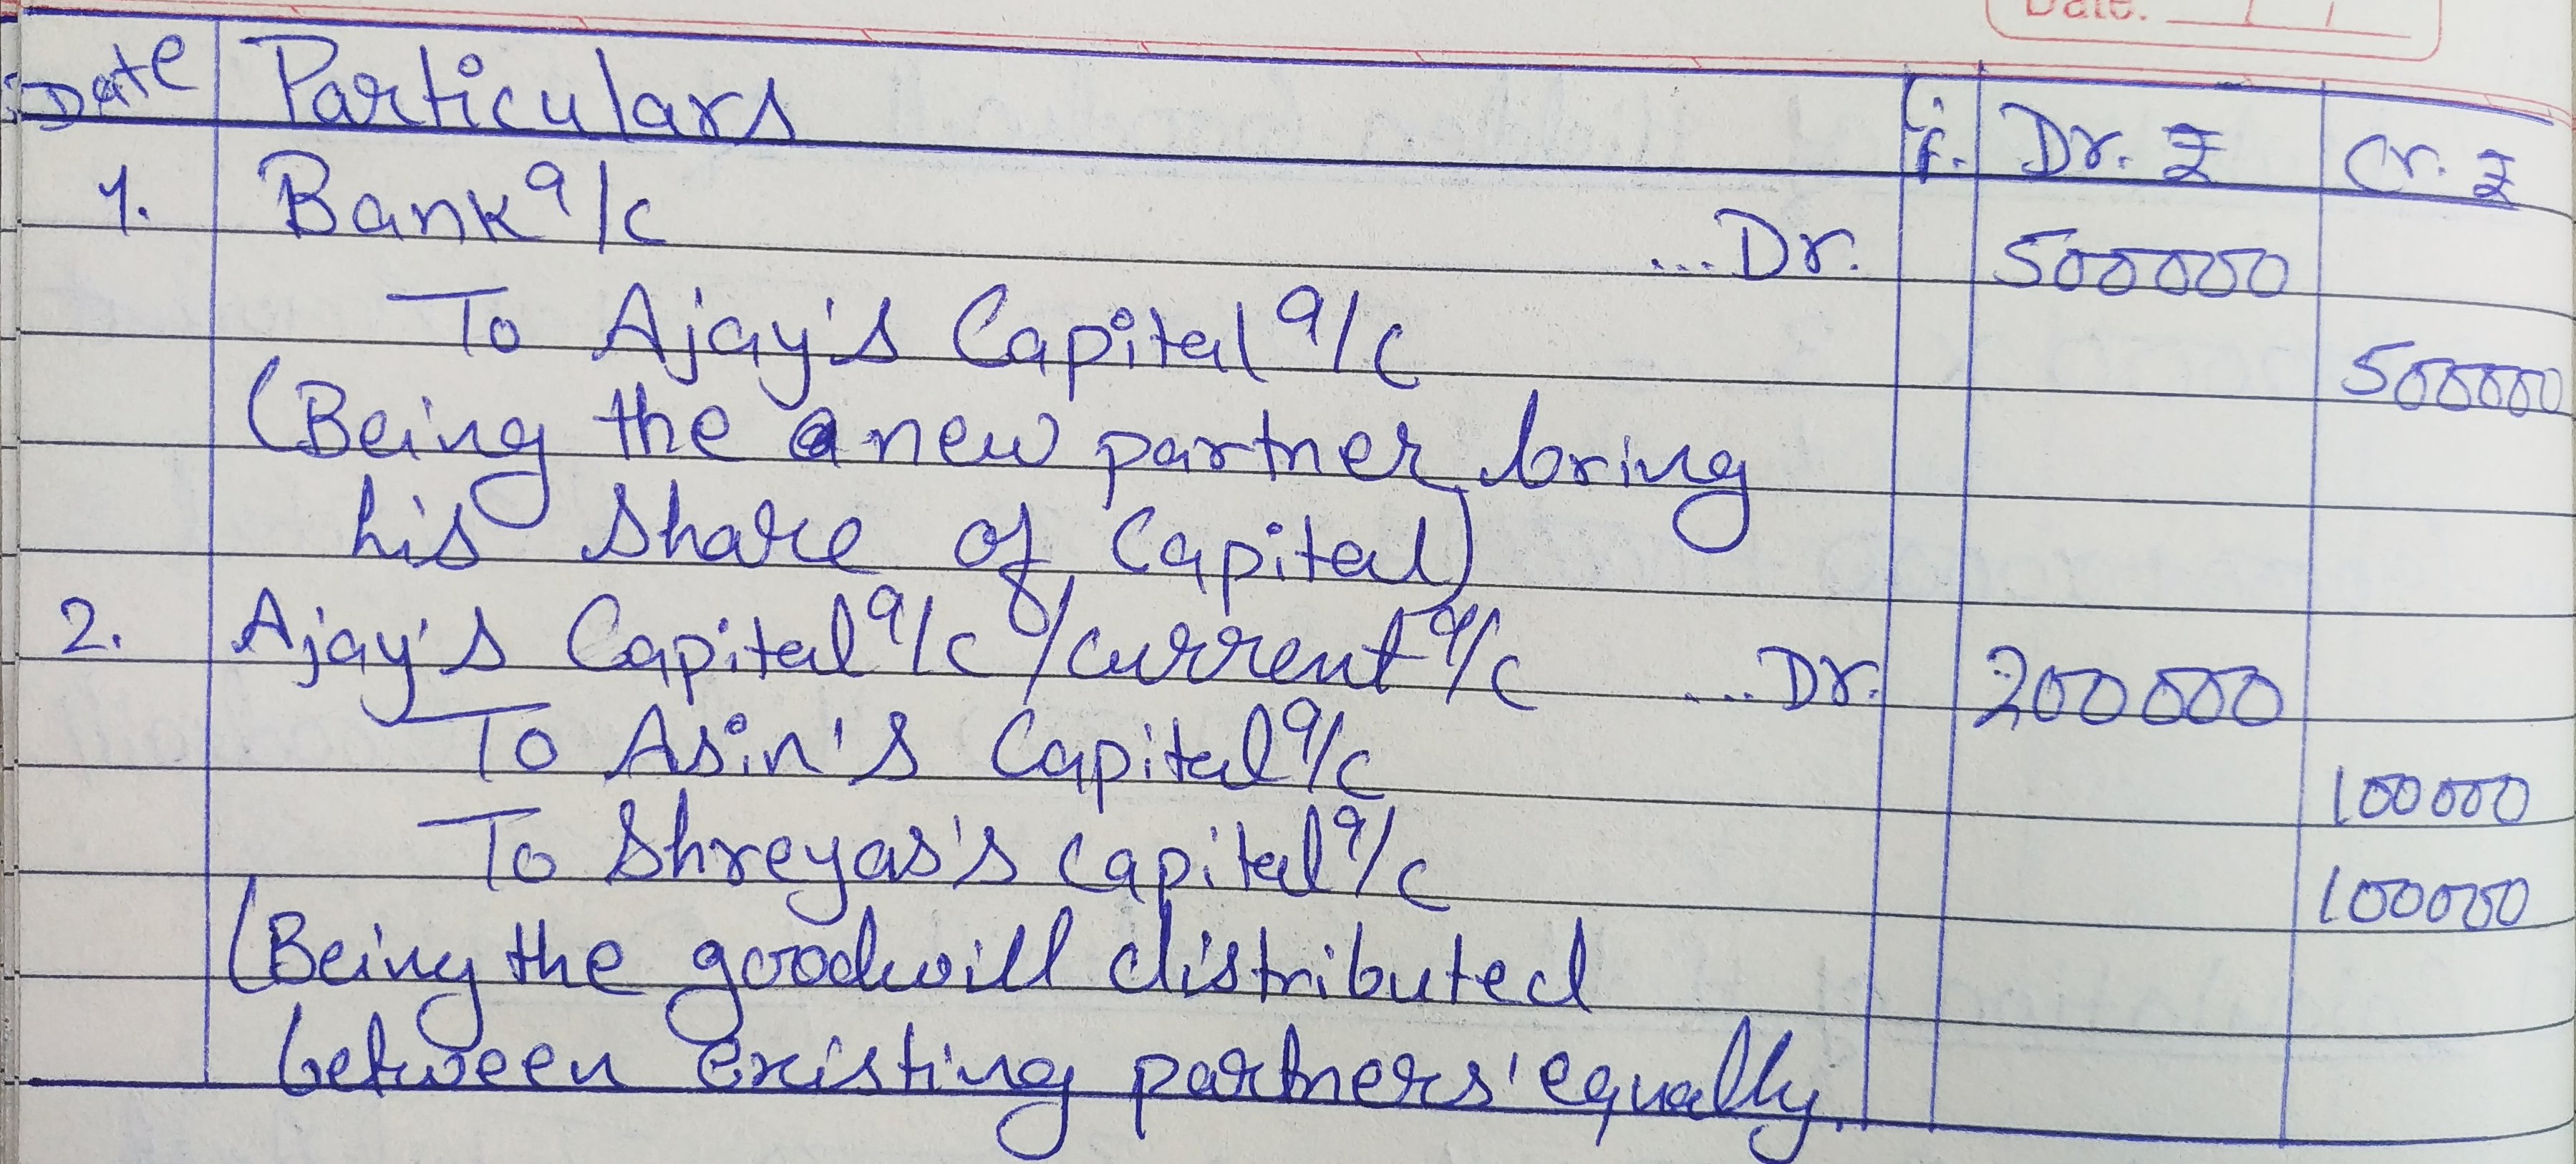 Date:
Date Particulars L.F. Dr. ₹ Cr. ₹
1. Bank a/c ...Dr. 500000
To Ajay's Capital a/c 500000
(Being the a new partner bring
his share of Capital)
2. Ajay's Capital a/c / current a/c ...Dr. 200000
To Asin's Capital a/c 100000
To Shreyas's capital a/c 100000
(Being the goodwill distributed
between existing partners' equally.